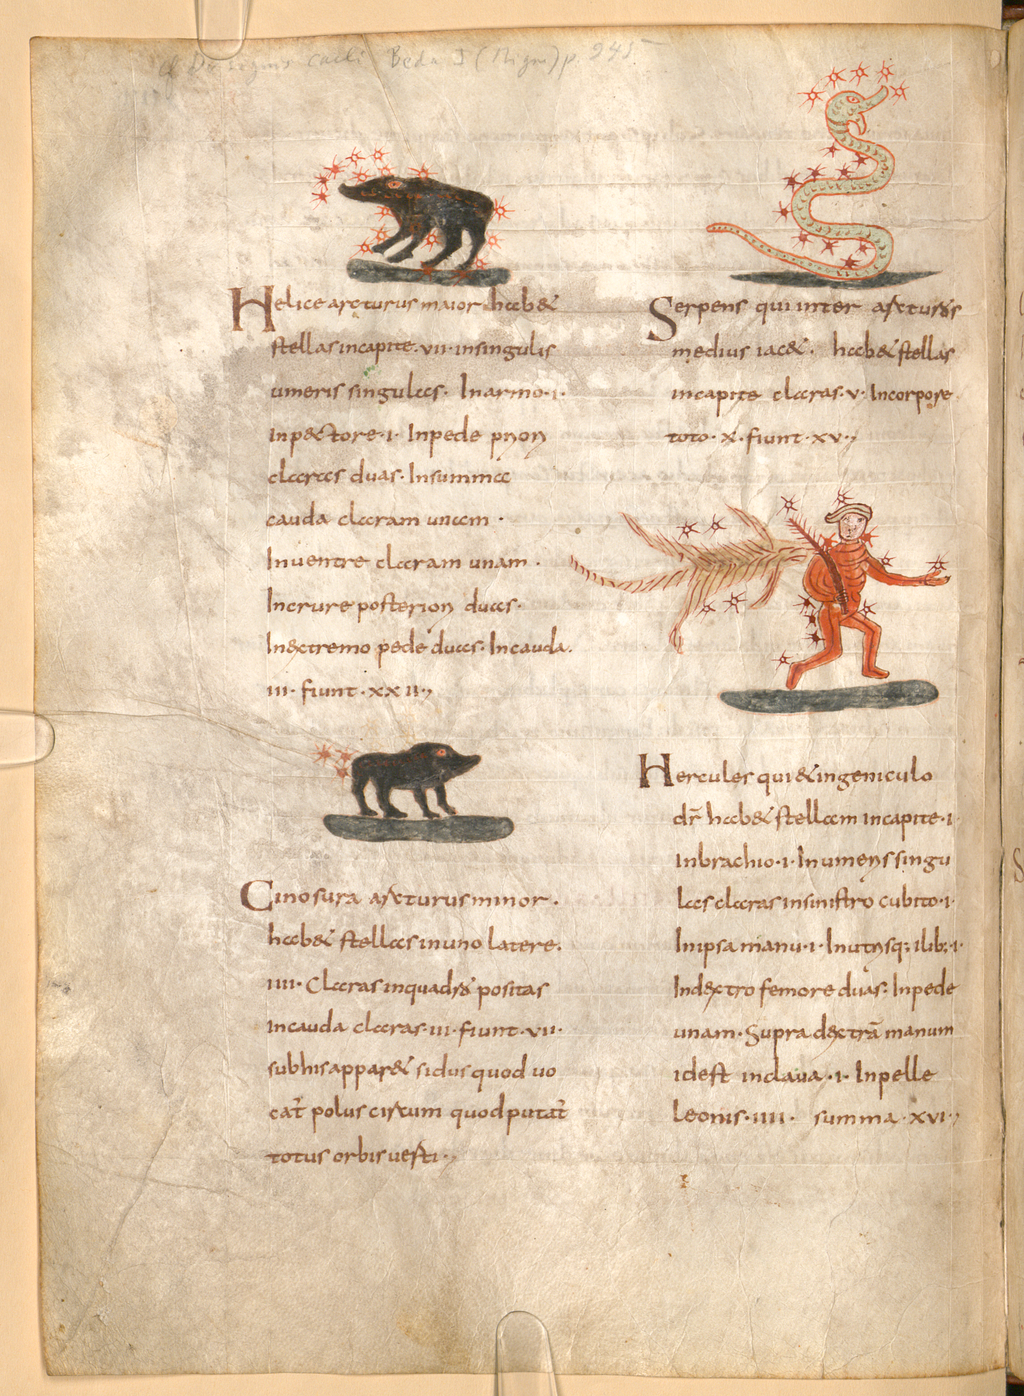 cf De signis caeli Beda I (Migne) p. 945
Helice arcturus maior hab&
stellas incapite·vii·insingulis
umeris singulas· Inarmo·i·
Inp&ctore·i· Inpede priori
claras duas· Insumma
cauda claram unam·
Inuentre claram unam·
Incrure posteriori duas·
Inextremo pede duas· Incauda·
iii· fiunt·xxii·,
Cinosura arcturus minor·
hab& stellas inuno latere·
iiii· Claras inquadro positas
incauda claras·iii·fiunt·vii·
subhisappar& sidus quod uo
cat̄ polus circum quodputat̄
totus orbis uesti·,
Serpens qui inter arcturos
medius iac&· hab& stellas
incapite claras·v· Incorpore
toto·x·fiunt·xv·,
Hercules qui & ingeniculo
dr̄ hab& stellam incapite·i·
inbrachio·i· Inumerissingu
las claras insinistro cubito·i·
Inipsa manu·i· Inutrisq; ilib;·i·
Indextro femore duas· Inpede
unam· Supra dextrā manum
idest inclaua·i· Inpelle
Leonis·iiii· summa·xvi·,